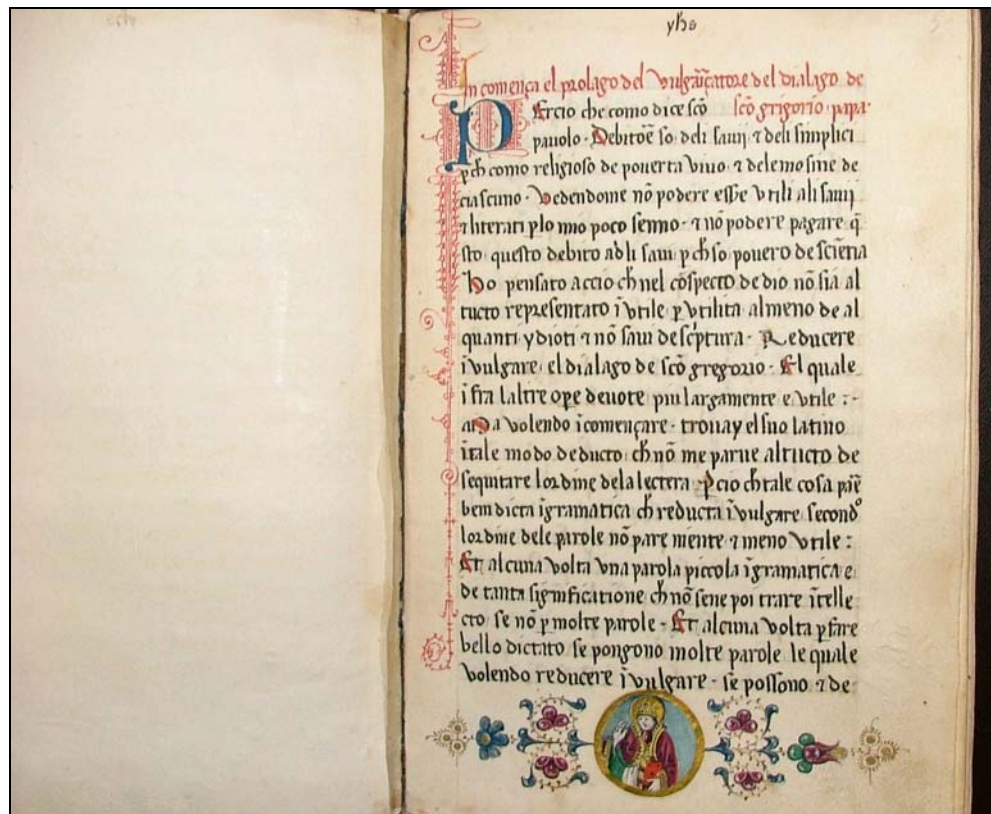 yħs
In comença el prolago del vulgariçatore del dialago de
PErcio che como dice sc̃o sc̃o grigorio papa·
pauolo · Debitoẽ so deli sauij ⁊ deli simplici
ꝑch como religioso de pouerta viuo ⁊ delemosine de
ciascuno · Vedendome nõ podere esse vtili ali sauij
⁊ literati ꝑlo mio poco senno · ⁊ nõ podere pagare q̃
sto questo debito adli saui ꝑch so pouero de sciẽtia
Ho pensato accio cħ nel cõspecto de dio nõ sia al
tucto representato ĩvtile ꝑ vtilita almeno de al
quanti ydioti ⁊ nõ saui de scͥptura · Reducere
ĩvulgare el dialago de sc̃o gregorio · El quale
ĩfra laltre oꝑe deuote piu largamente e vtile : -
Ma volendo ĩcomençare · trouay el suo latino
ĩtale modo deducto cħ nõ me parue altucto de
sequitare lordine dela lectera · Ꝑcio cħ tale cosa par̃
bem dicta ĩgramatica cħ reducta ĩvulgare secondº
lordine dele parole nõ pare niente ⁊ meno vtile :
Et alcuna volta vna parola piccola ĩgramatica e
de tanta significatione cħ nõ sene poi trare ĩtelle
cto se nõ ꝑ molte parole · Et alcuna volta ꝑ fare
bello dictato se pongono molte parole le quale
volendo reducere ĩvulgare · se possono ⁊ de